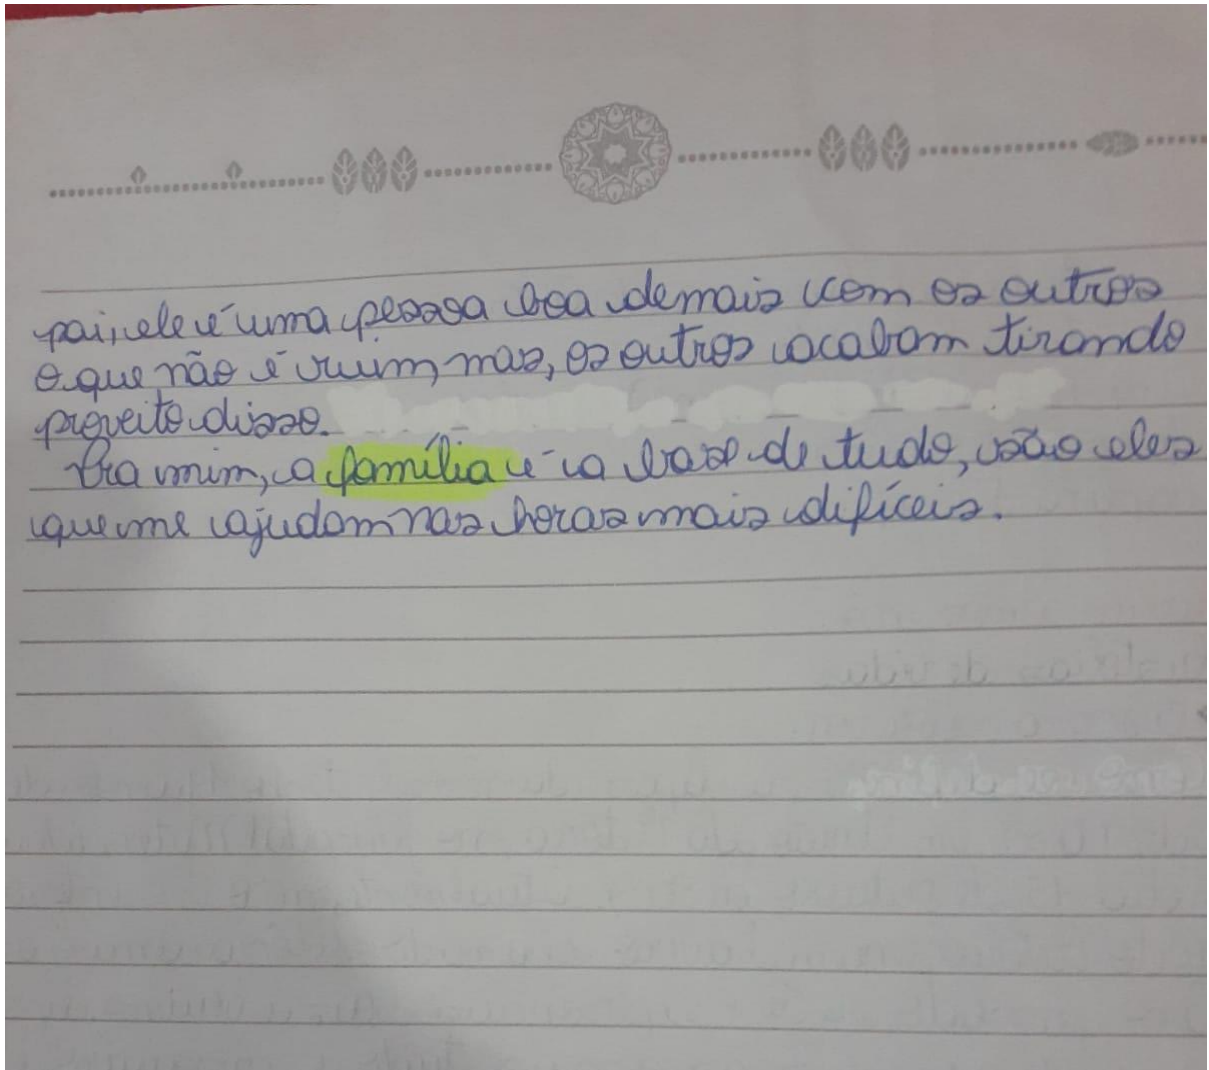 pai, ele é uma pessoa boa demais com os outros
o que não é ruim, mas, os outros acabam tirando
proveito disso.
Pra mim, a família é a base de tudo, são eles
que me ajudam nas horas mais difíceis.